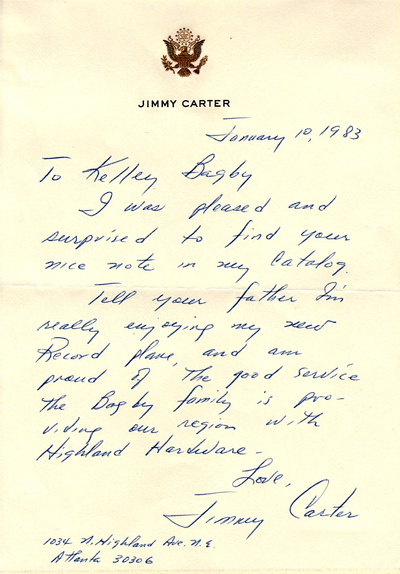 JIMMY CARTER
January 10, 1983
To Kelley Bagby
I was pleased and
surprised to find your
nice note in my Catalog.
Tell your father I'm
really enjoying my new
Record plane, and am
proud of the good service
the Bagby family is pro-
viding our region with
Highland Hardware -
Love,
Jimmy Carter
1034 N. Highland Ave. N.E.
Atlanta 30306